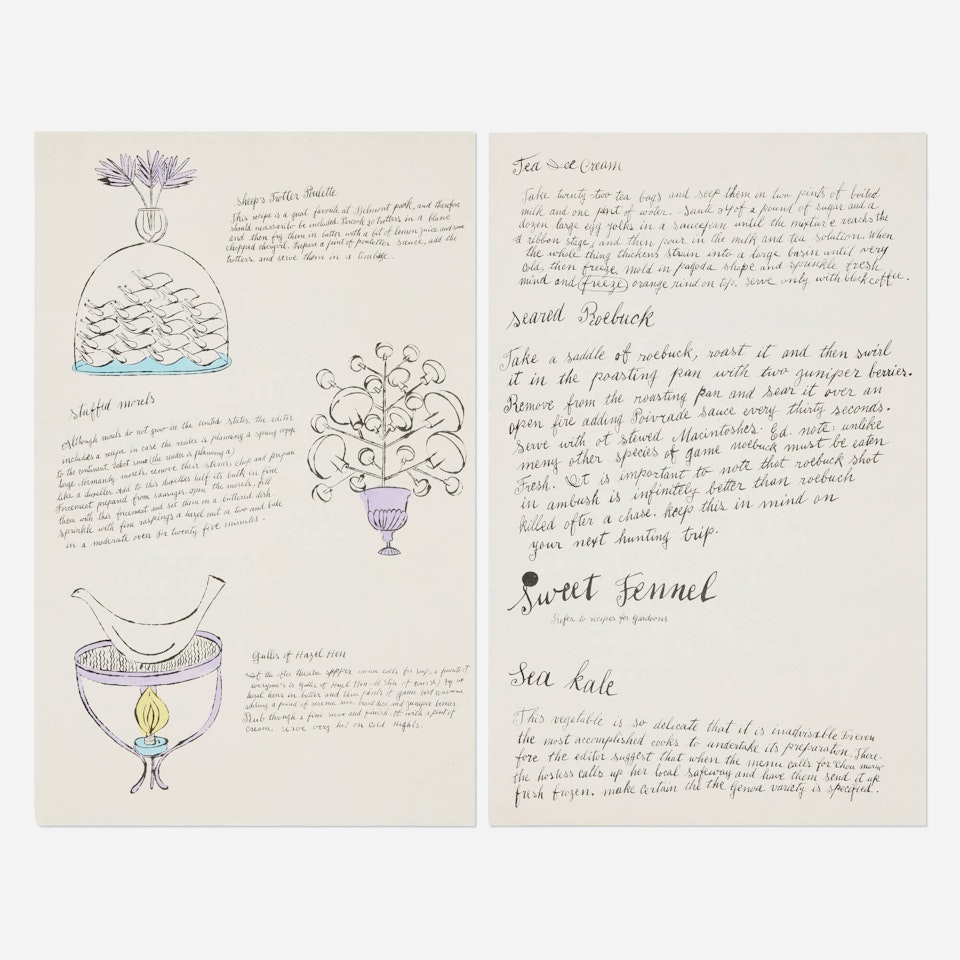 Sheep's Trotter Poulette
This recipe is a great favorite at Belmont park, and therefore
should necessarily be included. Precook 20 trotters in a blanc
and then fry them in batter with a bit of lemon juice and some
chopped chervil. Prepare a pint of poulette sauce, add the
trotters and serve them in a timbale.
Stuffed morels
Although morels do not grow in the United States, the editer
includes a recipe in case the reader is planning a spring
to the continent. Select some (the reader is planning a)
large Normandy morels, remove their stems, chop and prepare
like a duxelles. Add to this duxelles half its bulk in fine
Forcement prepared from sausages. open the morels, fill
them with this forcement and set them in a buttered dish.
Sprinkle with fine raspings a hazel nut or two and bake
in a moderate oven for twenty five minutes.
Gullis of Hazel Hen
If the after theatre menu calls for soup, a favorite of
everyone's is Gullis of Hazel Hen
hazel hens in butter and three pints of game
adding a pound of juniper berries.
Rub through a fine sieve and finish off with a pint of
cream. serve very hot on cold nights.
Tea Ice Cream
Take twenty-two tea bags and seep them in two pints of boiled
milk and one pint of water. 3/4 of a pound of sugar and a
dozen large egg yolks in a saucepan until the mixture reaches the
a ribbon stage, and then pour in the milk and tea solution. When
the whole thing thickens strain into a large basin until very
cold, then freeze, mold in pagoda shape and sprinkle fresh
mind and (freeze) orange rind on top. serve only with black coffee.
Seared Roebuck
Take a saddle of roebuck, roast it and then swirl
it in the poasting pan with two juniper berries.
Remove from the roasting pan and sear it over an
open fire adding Poivrade sauce every thirty seconds.
Serve with ot stewed Macintoshes. Ed. note: unlike
meny other species of game roebuck must be eaten
Fresh. It is important to note that roebuck shot
in ambush is infinitely better than roebuck
killed after a chase. keep this in mind on
your next hunting trip.
Sweet Fennel
Refer to recipes for Gardoons
Sea kale
This vegetable is so delicate that it is inadvisable for even
the most accomplished cooks to undertake its preparation. There-
fore the editor suggest that when the menu calls for chou marin
the hostess calls up her local safeway and have them send it up
fresh frozen. make certain the the Genoa variety is specified.